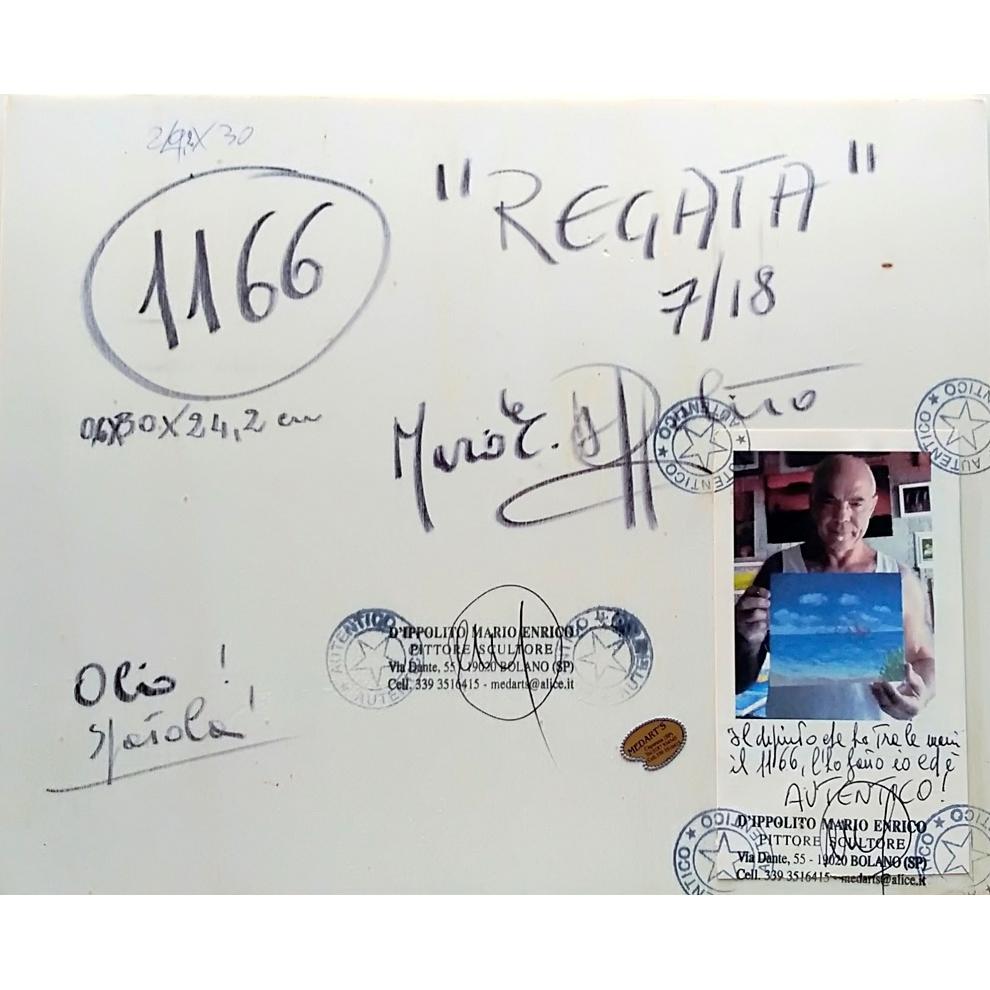 1166
"REGATA"
7/18
30X24,2 cm
Mario E. D'Ippolito
Olio !
Spatola!
AUTENTICO AUTENTICO
D'IPPOLITO MARIO ENRICO
PITTORE SCULTORE
Via Dante, 55 - 19020 BOLANO (SP)
Cell. 339 3516415 - medarts@alice.it
AUTENTICO
AUTENTICO
MEDART'S
AUTENTICO
AUTENTICO
Il dipinto che ho tra le mani
il 1166, l'ho fatto io ed è
AUTENTICO!
D'IPPOLITO MARIO ENRICO
PITTORE SCULTORE
Via Dante, 55 - 19020 BOLANO (SP)
Cell. 339 3516415 - medarts@alice.it
AUTENTICO
AUTENTICO